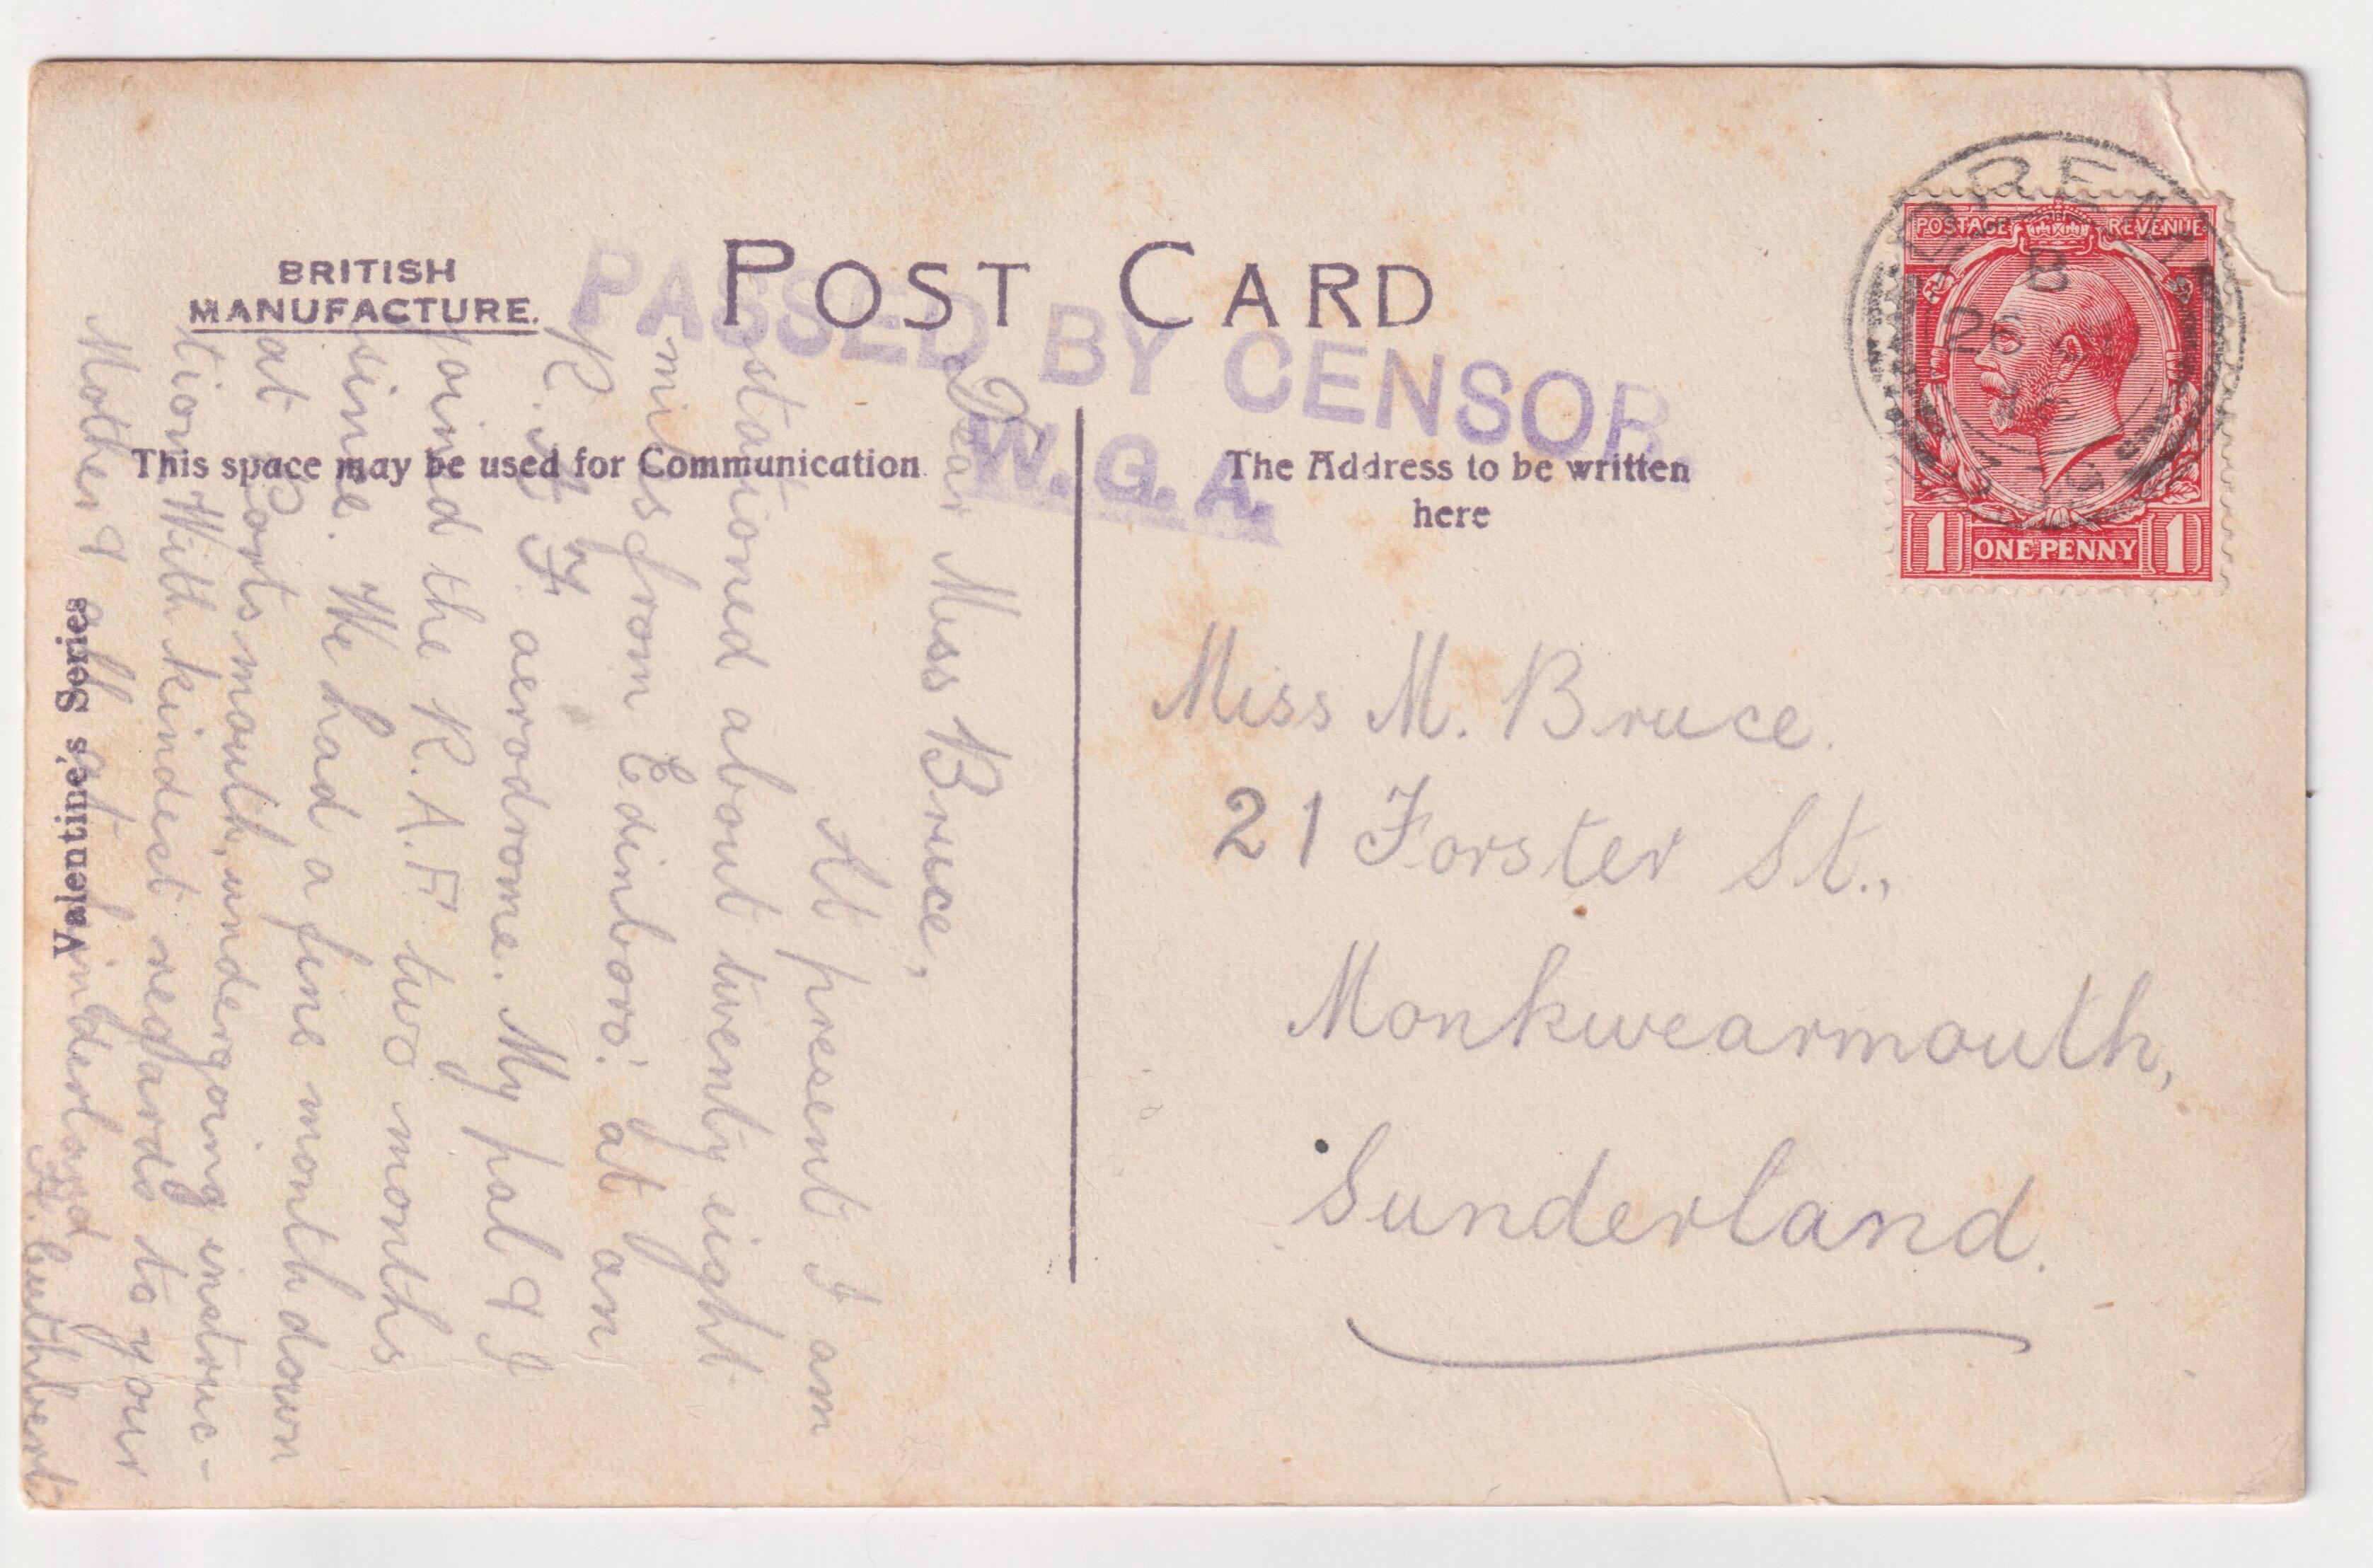 POST CARD
BRITISH
MANUFACTURE.
PASSED BY CENSOR.
W. G. A.
This space may be used for Communication
The Address to be written
here
Valentine's Series
POSTAGE REVENUE
1 ONE PENNY 1
B
26
Dear Miss Bruce,
At present I am
stationed about twenty eight
miles from Edinboro' at an
R. A. F. aerodrome. My pal & I
joined the R.A.F. two months
since. We had a fine month down
at Portsmouth, undergoing instruc-
tion. With kindest regards to your
Mother & all at Sunderland
A. Cuthbert
Miss M. Bruce.
21 Forster St.,
Monkwearmouth,
Sunderland.